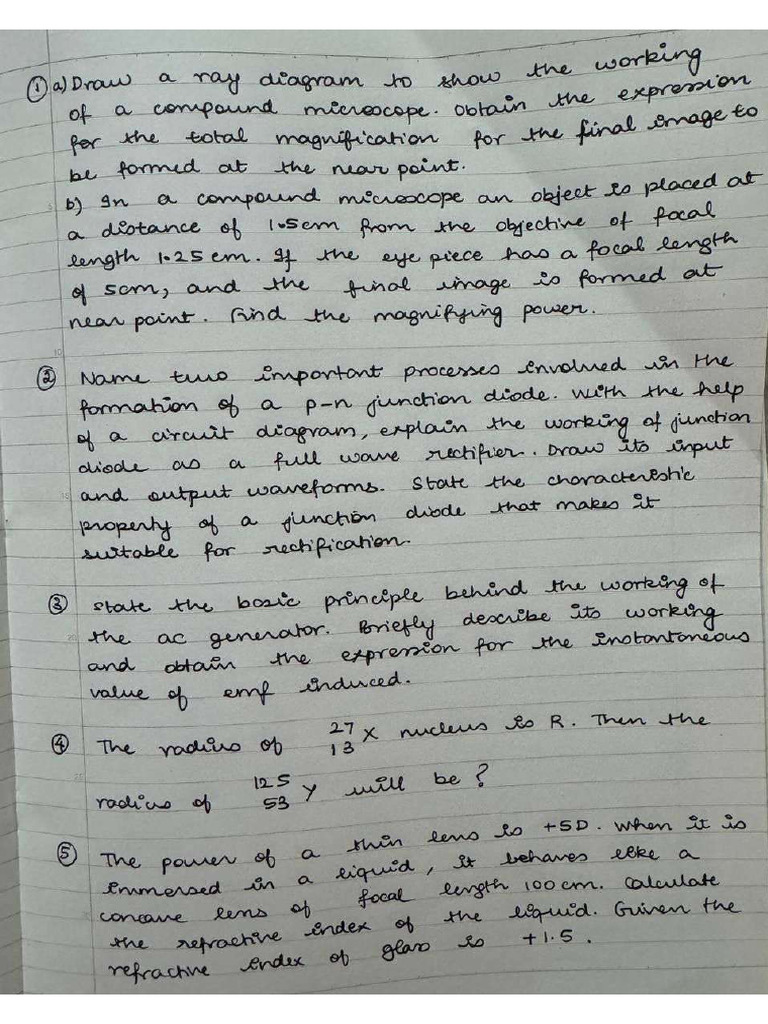 ① a) Draw a ray diagram to show the working
of a compound microscope. Obtain the expression
for the total magnification for the final image to
be formed at the near point.
b) In a compound microscope an object is placed at
a distance of 1.5cm from the objective of focal
length 1.25 cm. If the eye piece has a focal length
of 5cm, and the final image is formed at
near point. Find the magnifying power.
② Name two important processes involved in the
formation of a p-n junction diode. With the help
of a circuit diagram, explain the working of junction
diode as a full wave rectifier. Draw its input
and output waveforms. State the characteristic
property of a junction diode that makes it
suitable for rectification.
③ State the basic principle behind the working of
the ac generator. Briefly describe its working
and obtain the expression for the instantaneous
value of emf induced.
④ The radius of ²⁷₁₃X nucleus is R. Then the
radius of ¹²⁵₅₃Y will be?
⑤ The power of a thin lens is +5D. When it is
immersed in a liquid, it behaves like a
concave lens of focal length 100cm. Calculate
the refractive index of the liquid. Given the
refractive index of glass is +1.5.